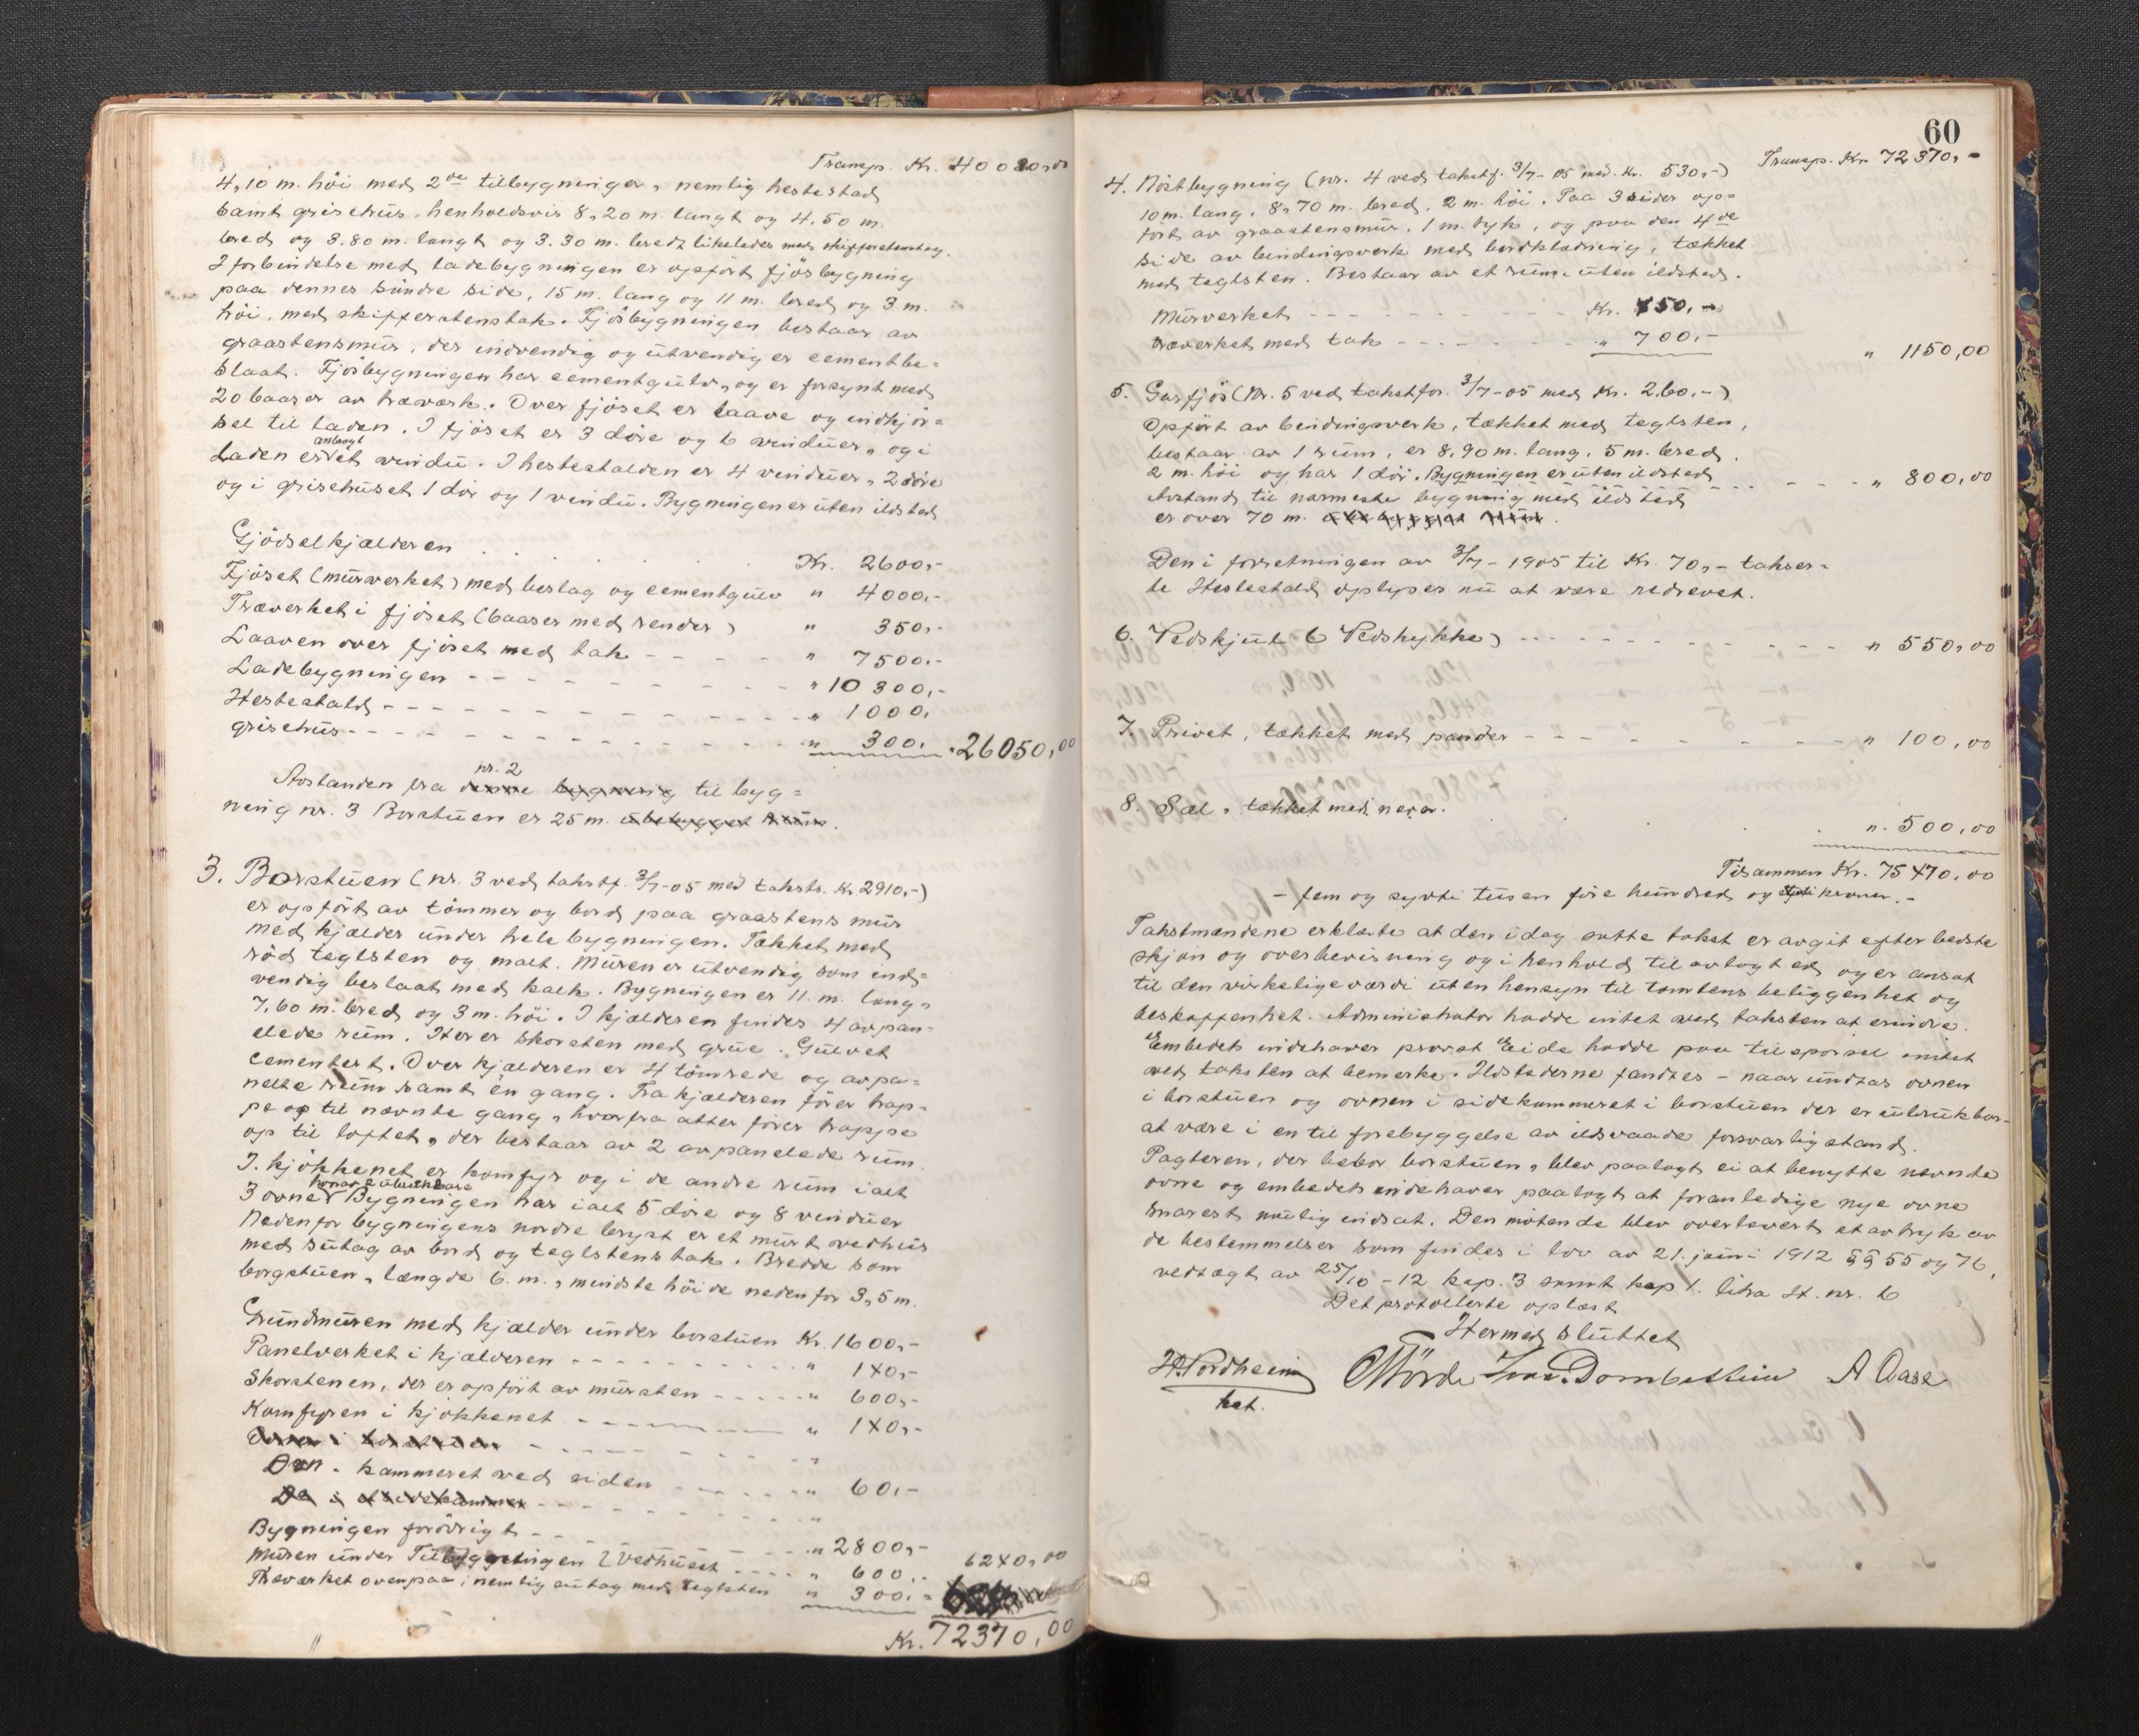 Transp. Kr. 40080,00
4,10 m. höi med 2de tilbygninger, nemlig hestestad
samt grisehus, henholdsvis 8,20 m. langt og 4.50 m.
bred og 3.80 m. langt og 3.30 m. bredt likeledes med skifferstenstag.
I forbindelse med ladebygningen er opført fjösbygning
paa dennes söndre side, 15 m. lang og 11 m. bred og 3 m.
höi, med skifferstenstak. Fjösbygningen bestaar av
graastensmur, der indvendig og utvendig er cementbe=
slaat. Fjösbygningen har cementgulv, og er forsynt med
20 baaser av træværk. Over fjöset er laave og indkjör=
sel til laden. I fjöset er 3 döre og 6 vinduer, og i
Laden er anbragt et vindu. I hestestalden er 4 vinduer, 2 döre
og i grisehuset 1 dör og 1 vindu. Bygningen er uten ildsted
Gjödselkjælderen . . . . . Kr. 2600,-
Fjöset (murverket) med beslag og cementgulv " 4000,-
Træverket i fjöset (baaser med render) " 350,-
Laaven over fjöset med tak - - - - " 7500.-
Ladebygningen - - - - - - - - " 10300,-
Hestestald - - - - - - - - - - " 1000,
grisehus - - - - - - - - - - " 300, " 26050,00
Avstanden fra nr. 2 denne bygning til byg=
ning nr. 3 Borstuen er 25 m. ubebygget rum.
3. Borstuen (nr. 3 ved takstf. 3/7-05 med taksts. Kr. 2910,-)
er opfört av tömmer og bord paa graastens mur
med kjælder under hele bygningen. Tækket med
röd teglsten og malt. Muren er utvendig som ind=
vendig beslaat med kalk. Bygningen er 11. m. lang,
7,60 m. bred og 3 m. höi. I kjælderen findes 4 avpan=
elede rum. Her er skorsten med grue. Gulvet
cementert. Over kjælderen er 4 tömrede og avpa=
nelte rum samt en gang. Fra kjælderen förer trap=
pe op til nævnte gang, hvorfra atter förer trappe
op til loftet, der bestaar av 2 avpanelede rum.
I. kjökkenet er komfyr og i de andre rum ialt
3 ovne hvorav 2 ubrukbare Bygningen har ialt 5 döre og 8 vinduer
Nedenfor bygningens nordre bryst er et murt vedhus
med sutag av bord og teglstens tak. Bredde som
borgstuen, længde 6. m., mindste höide nedenfor 3,5 m.
Grundmuren med kjælder under borstuen Kr. 1600,-
Panelverket i kjælderen - - - - - - - " 140,-
Skorstenen, der er opfört av mursten - - - - " 600,-
Komfyren i kjökkenet - - - - - - " 140,-
Ovnen i borstuen - - - - - - "
Ovn - kammeret ved siden - - - - - " 60,-
Do i et sidekammer - - - - - - "
Bygningen forövrigt - - - - - - " 2800,-
Muren under Tilbygningen (Vedhuset - - - - " 600,- 6240,00
Træværket ovenpaa, nemlig sutag med teglsten " 300,-
Kr. 72370,00
60
Transp. Kr. 72370,-
4. Nöstbygning (nr. 4 ved takstf. 3/7-05 med. Kr. 530,-)
10 m. lang. 8,70 m. bred. 2 m. höi. Paa 3 sider op=
fört av graastensmur, 1 m. tyk, og paa den 4de
side av bindingsverk med bordklædning, tækket
med teglsten. Bestaar av et rum uten ildsted.
Murverket - - - - - - - - - Kr. 450,-
træverket med tak - - - - - - " 700,-
" 1150,00
5. Garfjös (Nr. 5 ved takstfor. 3/7-05 med Kr. 260.-)
Opfört av bindingsverk, tækket med teglsten,
bestaar av 1 rum, er 8,90 m. lang, 5 m. bred.
2 m. höi og har 1 dör. Bygningen er uten ildsted - - - " 800,00
Avstand til nærmeste bygning med ildsted
er over 70 m. ubebygget rum.
Den i forretningen av 3/7-1905 til Kr. 70,- takser=
te Hestestald oplyses nu at være nedrevet.
6. Vedskjul (Vedskykke) - - - - - - - - " 550,00
7. Privet, tækket med pander - - - - - - - " 100,00
8. Sæl, tækket med never. . . . ". 500,00
Tilsammen Kr. 75470,00
- fem og sytti tusen fire hundred og sytti kroner.-
Takstmændene erklærte at den idag satte takst er avgit efter bedste
skjön og overbevisning og i henhold til avlagt ed og er ansat
til den virkelige værdi uten hensyn til tomtens beliggenhet og
beskaffenhet. Administrator hadde intet ved taksten at erindre.
Embedets indehaver provst Eide hadde paa tilspörsel intet
ved taksten at bemerke. Ildstederne fandtes - naar undtas ovnen
i borstuen og ovnen i sidekammeret i borstuen der er ubrukbar -
at være i en til forebyggelse av ildsvaade forsvarlig stand.
Pagteren, der bebor borstuen, blev paalagt ei at benytte nævnte
ovne og embedets indehaver paalagt at foranledige nye ovne
snarest mulig indsat. Den mötende blev overlevert et avtryk av
de bestemmelser som findes i lov av 21. juni 1912 §§ 55 og 76,
vedtægt av 25/10-12 kap. 3 samt kap 1. litra H. nr. 6
Det protokollerte oplæst
Hermed sluttet
H. Nordheim O. Mörde Ivar Dombestein A Aase
kst.